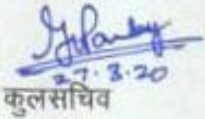 27.8.20
कुलसचिव